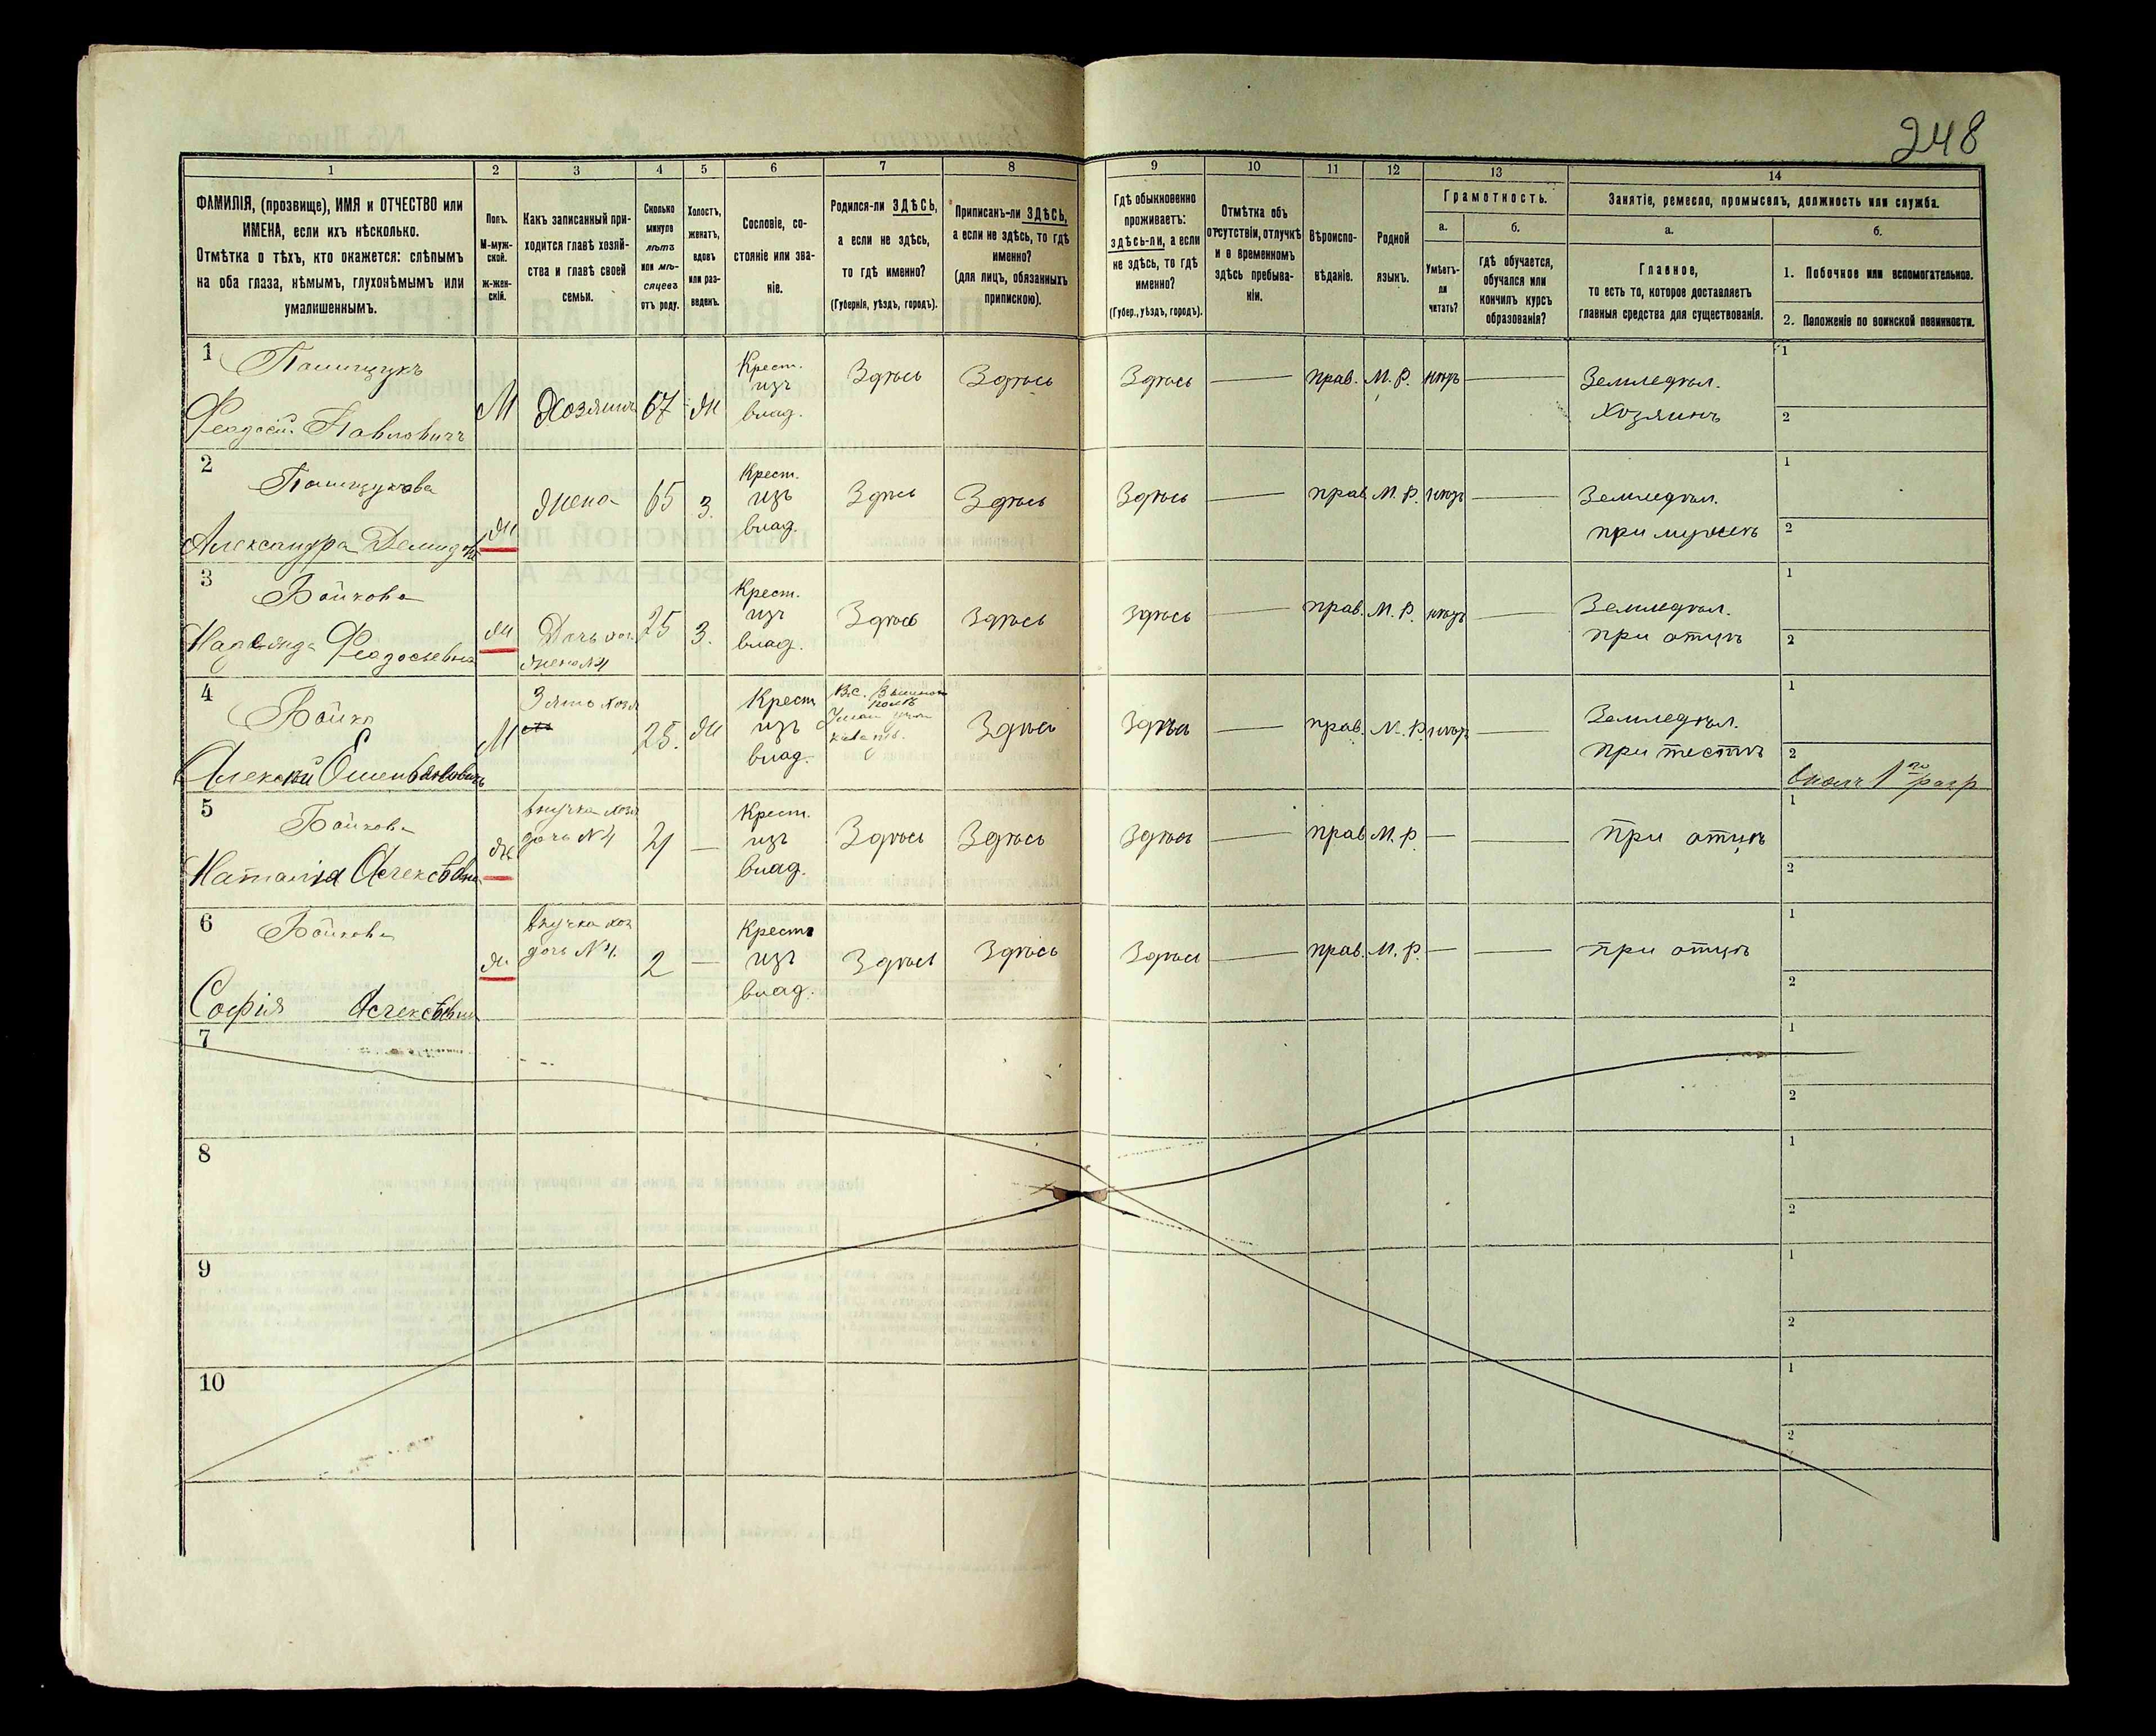 248
1 2 3 4 5 6 7 8 9 10 11 12 13 14
ФАМИЛІЯ, (прозвище), ИМЯ и ОТЧЕСТВО или
ИМЕНА, если ихъ нѣсколько.
Отмѣтка о тѣхъ, кто окажется: слѣпымъ
на оба глаза, нѣмымъ, глухонѣмымъ или
умалишеннымъ.
Полъ.
М-муж-
ской.
ж-жен-
скій.
Какъ записанный при-
ходится главѣ хозяй-
ства и главѣ своей
семьи.
Сколько
минуло
лѣтъ
или мѣ-
сяцевъ
отъ роду.
Холостъ,
женатъ,
вдовъ
или раз-
веденъ.
Сословіе, со-
стояніе или зва-
ніе.
Родился-ли ЗДѢСЬ,
а если не здѣсь,
то гдѣ именно?
(Губернія, уѣздъ, городъ).
Приписанъ-ли ЗДѢСЬ,
а если не здѣсь, то гдѣ
именно?
(для лицъ, обязанныхъ
припискою).
Гдѣ обыкновенно
проживаетъ:
здѣсь-ли, а если
не здѣсь, то гдѣ
именно?
(Губер., уѣздъ, городъ).
Отмѣтка объ
отсутствіи, отлучкѣ
и о временномъ
здѣсь пребыва-
ніи.
Вѣроиспо-
вѣданіе.
Родной
языкъ.
Грамотность.
а.
Умѣетъ-
ли
читать?
б.
гдѣ обучается,
обучался или
кончилъ курсъ
образованія?
Занятіе, ремесло, промыселъ, должность или служба.
а.
Главное,
то есть то, которое доставляетъ
главныя средства для существованія.
б.
1. Побочное или вспомогательное.
2. Положеніе по воинской повинности.
1 Полищукъ
Феодосій Павловичъ
М Хозяинъ 67 Ж
Крест.
изъ
влад.
Здѣсь Здѣсь Здѣсь — прав. М. Р. нѣтъ —
Земледѣл.
Хозяинъ
1
2
2 Полищукова
Александра Демидов
ж жена 65 З.
Крест.
изъ
влад.
Здѣсь Здѣсь Здѣсь — прав. М. Р. нѣтъ —
Земледѣл.
при мужѣ
1
2
3 Бойкова
Надежда Феодосіевна
ж Дочь хоз.
жена №4
25 З.
Крест.
изъ
влад.
Здѣсь Здѣсь Здѣсь — прав. М. Р. нѣтъ —
Земледѣл.
при отцѣ
1
2
4 Бойко
Алексѣй
М Зять хозя
25. Ж
Крест
изъ
влад.
Здѣсь Здѣсь — прав. М. Р. нѣтъ —
Земледѣл.
при тестѣ
1
2
1го разр
5 Бойкова
Наталія Алексѣевна
ж внучка хозя
дочь №4
4 —
Крест.
изъ
влад.
Здѣсь Здѣсь Здѣсь — прав М. Р — —
при отцѣ
1
2
6 Бойкова
Софія Алексѣевна
ж внучка хоз
дочь №4.
2 —
Крест
изъ
влад.
Здѣсь Здѣсь Здѣсь — прав. М. Р. — —
при отцѣ
1
2
7
1
2
8
1
2
9
1
2
10
1
2